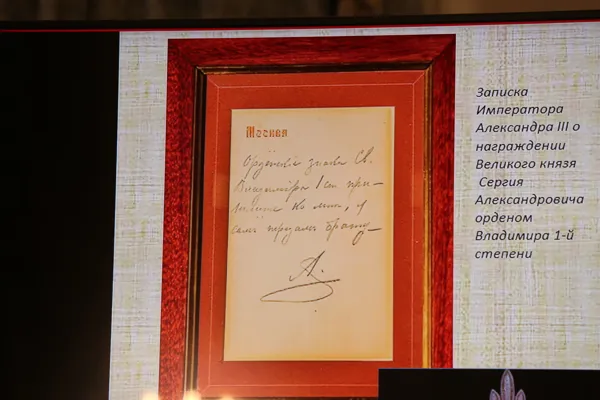 Москва
знаки Св.
Владиміра I ст. при-
шлите ко мнѣ, я
самъ передамъ брату
А.
Записка
Императора
Александра III о
награждении
Великого князя
Сергия
Александровича
орденом
Владимира 1-й
степени